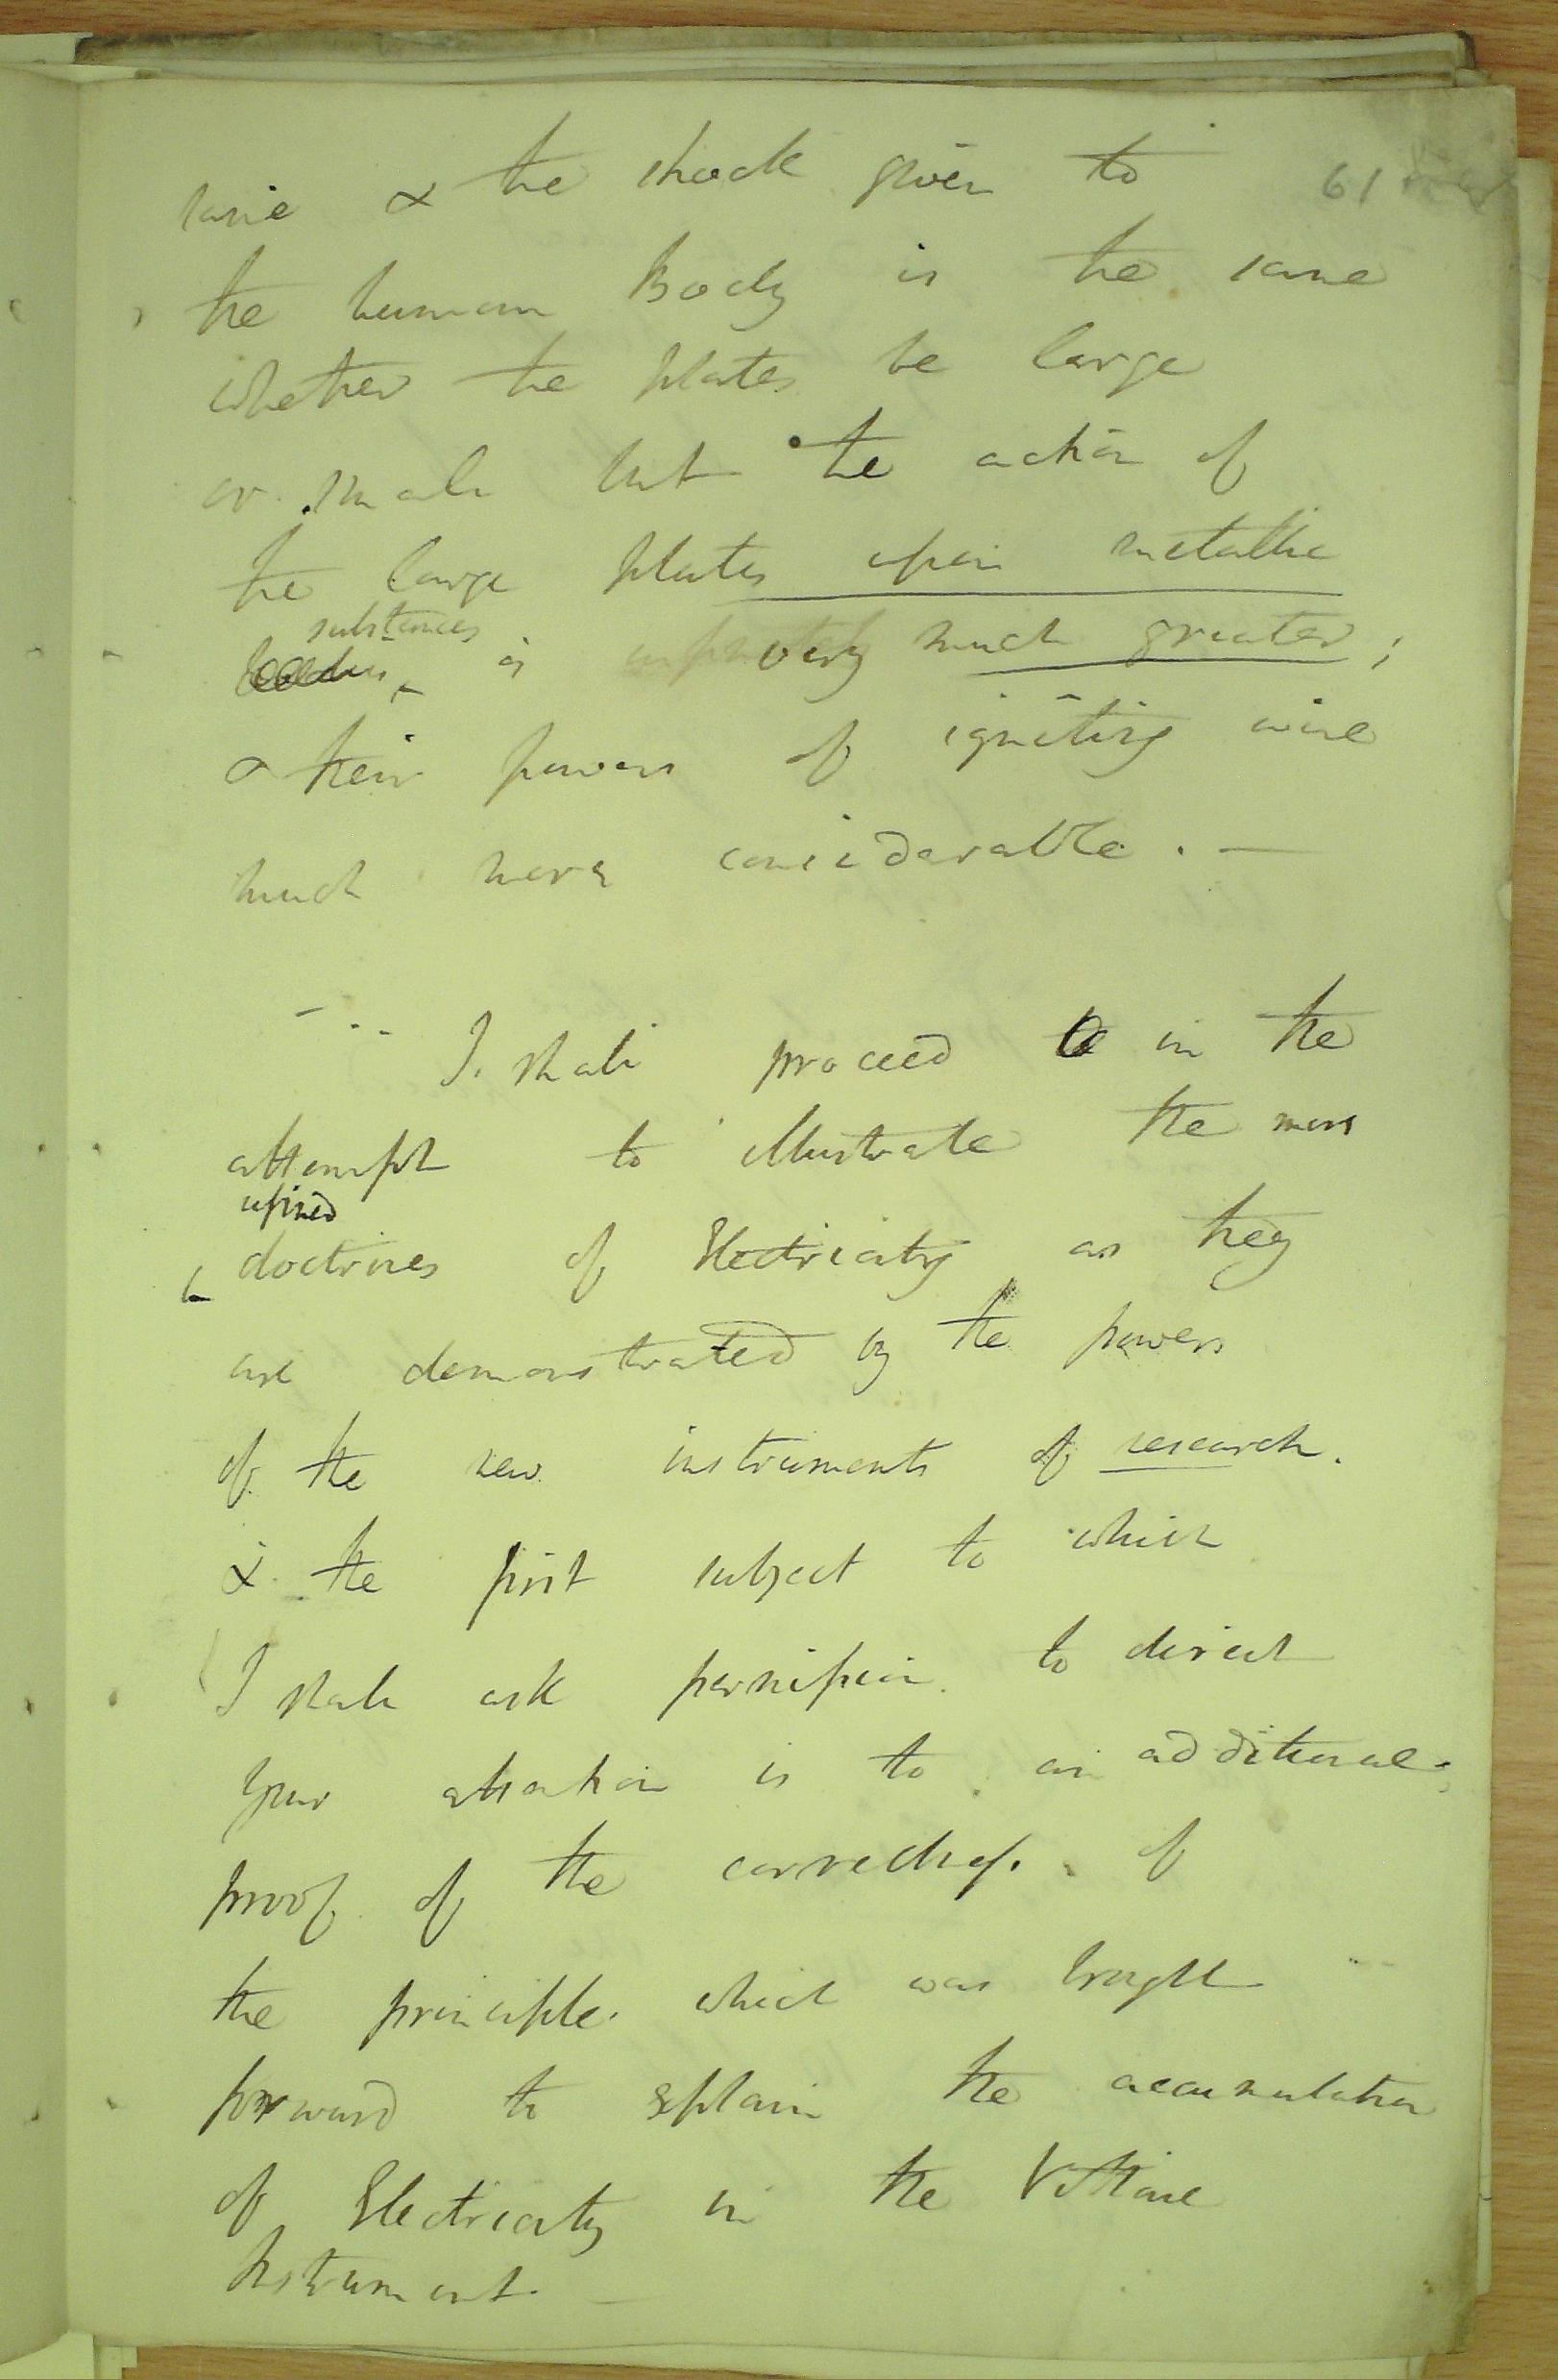 same & the shock given to
61
the human Body is the same
whether the plates be large
or small but the action of
the large plates upon metallic
substances
is very much greater;
& their powers of igniting wire
much more considerable. —
I shall proceed in the
attempt to illustrate the more
refined
doctrines of Electricity as they
are demonstrated by the powers
of the new instruments of research.
& the first subject to which
I shall ask permission to direct
your attention is to an additional
proof of the correctness of
the principle which was brought
forward to explain the accumulation
of Electricity in the Voltaic
Instrument. —